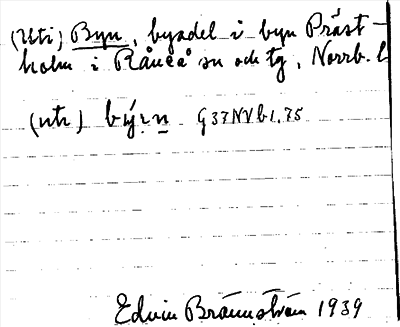 (Uti) Byn, bysdel i byn Präst-
holm i Råneå sn och tg, Norrb. l
(ut) býn G37NVb1.75
Edvin Brännström 1939